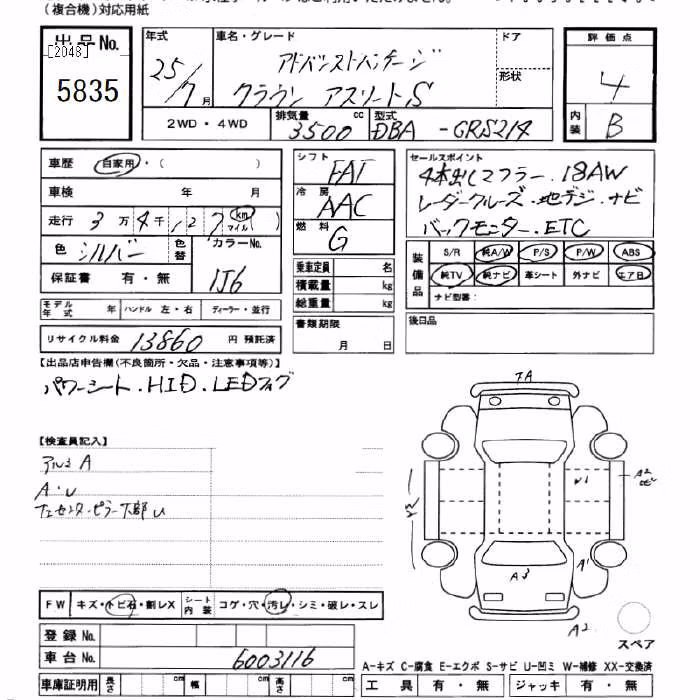 (複合機)対応用紙
出品No.
[2048]
5835
年式
25/7月
車名・グレード
アドバンストパッケージ
クラウン アスリートS
ドア
形状
評価点
4
内装
B
2WD・4WD
排気量
3500 cc
型式
DBA -GRS214
車歴 自家用・( )
車検 年 月
走行 3万4千127 km マイル ( )
色 シルバー
色替
カラーNo.
1J6
保証書 有・無
モデル年式 年 ハンドル 左・右 ディーラー・並行
リサイクル料金 13860 円 預託済
シフト
FAT
冷房
AAC
燃料
G
乗車定員 名
積載量 kg
総重量 kg
書類期限
月 日
セールスポイント
4本出しマフラー.18AW
レーダークルーズ.地デジ.ナビ
バックモニター.ETC
装備品
S/R 純A/W P/S P/W ABS
純TV 純ナビ 革シート 外ナビ エアB
ナビ型番:
後日品
【出品店申告欄(不良箇所・欠品・注意事項等)】
パワーシート.HID.LEDフォグ
【検査員記入】
アルミA
A・U
左センターピラー下部U
FW キズ・トビ石・割レX シート内装 コゲ・穴・汚レ・シミ・破レ・スレ
登録No.
車台No. 6003116
車庫証明用 長さ cm 幅 cm 高さ cm
A2
W1
A1
A3
A2
スペア
A-キズ C-腐食 E-エクボ S-サビ U-凹ミ W-補修 XX-交換済
工具 有・無 ジャッキ 有・無